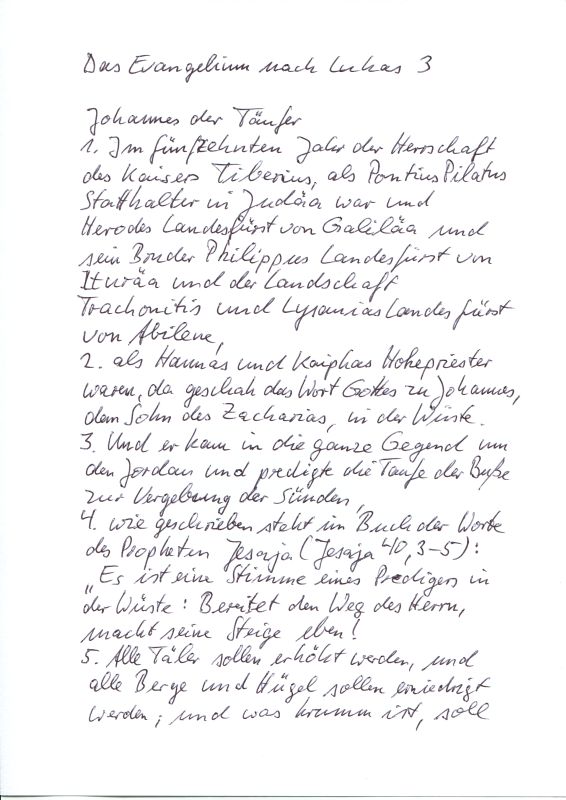 Das Evangelium nach Lukas 3
Johannes der Täufer
1. Im fünfzehnten Jahr der Herrschaft
des Kaisers Tiberius, als Pontius Pilatus
Statthalter in Judäa war und
Herodes Landesfürst von Galiläa und
sein Bruder Philippus Landesfürst von
Ituräa und der Landschaft
Trachonitis und Lysanias Landesfürst
von Abilene,
2. als Hannas und Kaiphas Hohepriester
waren, da geschah das Wort Gottes zu Johannes,
dem Sohn des Zacharias, in der Wüste.
3. Und er kam in die ganze Gegend um
den Jordan und predigte die Taufe der Buße
zur Vergebung der Sünden,
4. wie geschrieben steht im Buch der Worte
des Propheten Jesaja (Jesaja 40, 3-5):
„Es ist eine Stimme eines Predigers in
der Wüste: Bereitet den Weg des Herrn,
macht seine Steige eben!
5. Alle Täler sollen erhöht werden, und
alle Berge und Hügel sollen erniedrigt
werden; und was krumm ist, soll